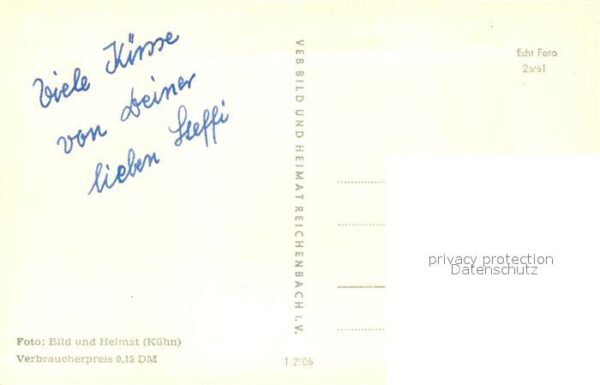 Viele Küsse
von Deiner
lieben Steffi
VEB BILD UND HEIMAT REICHENBACH I. V.
Echt Foto
26/61
privacy protection
Datenschutz
Foto: Bild und Heimat (Kühn)
Verbraucherpreis 0,15 DM